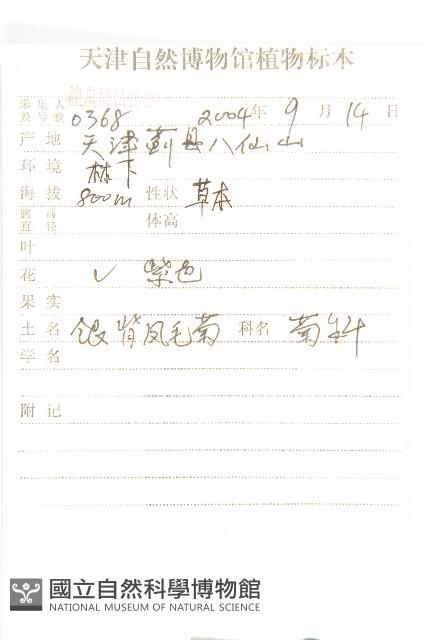 天津自然博物馆植物标本
采集人及号数 0368 2004年 9月 14日
产地 天津蓟县八仙山
环境 林下
海拔 800m 性状 草本
胸高直径 体高
叶
花 ✓ 紫色
果实
土名 银背风毛菊 科名 菊科
学名
附记
國立自然科學博物館
NATIONAL MUSEUM OF NATURAL SCIENCE